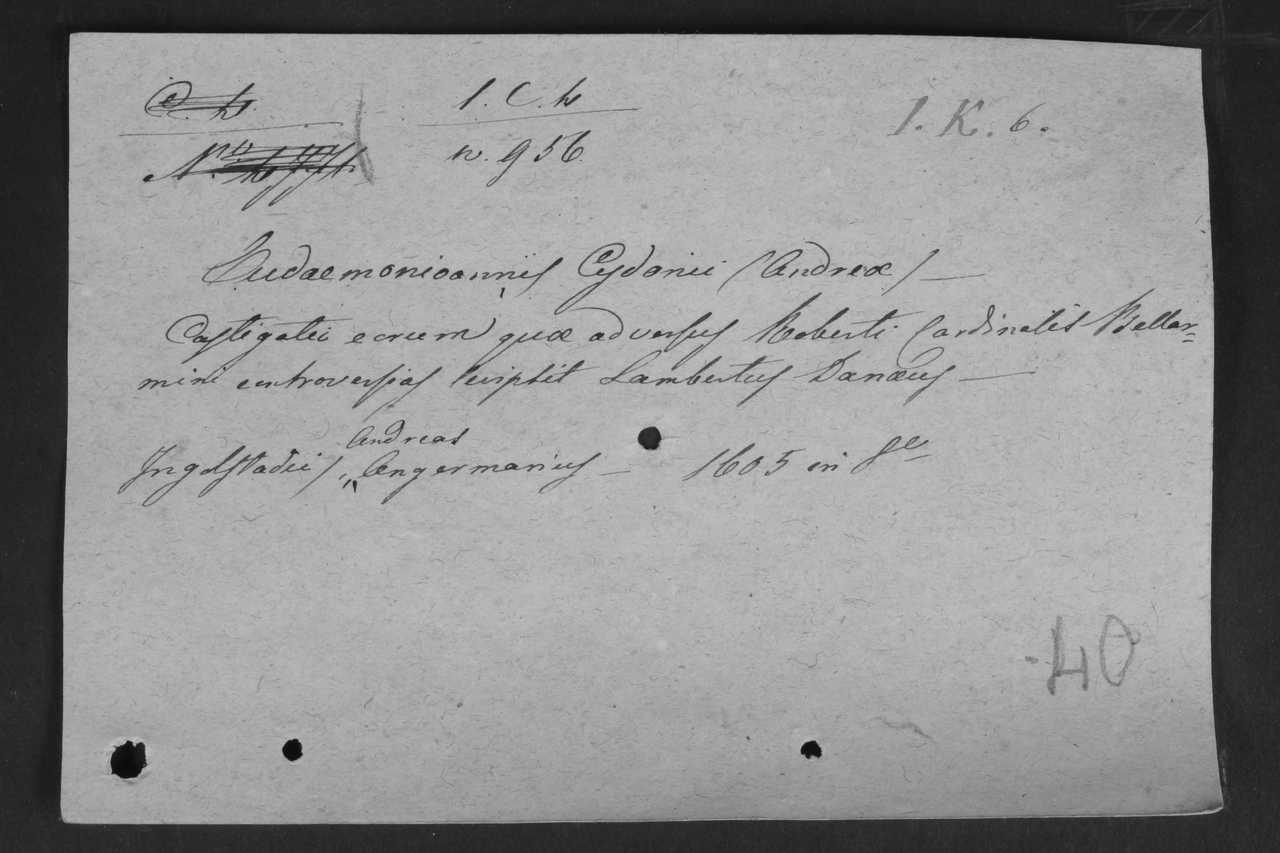 1. C. h
n. 956
1. K. 6.
Eudaemonioannis Cydonii (Andreæ) —
Castigatii eorum quæ adversus Roberti Cardinalis Bellar=
mini controversias scripsit Lambertus Danæus —
Andreas
Ingolstadii / Angermarius — 1605 in 8°
40